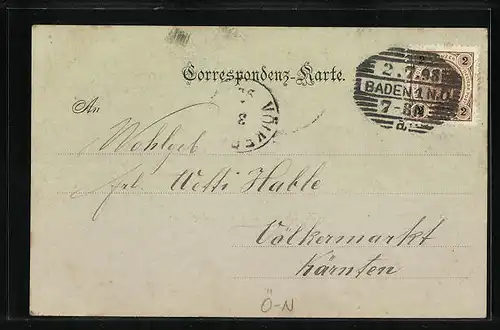 2.7.98
BADEN 1 N.Ö.
7-8N
2
2
Correspondenz-Karte.
VÖLKE
An
Wohlgeb
Frl. Wetti Hable
Völkermarkt
Kärnten
Ö-N